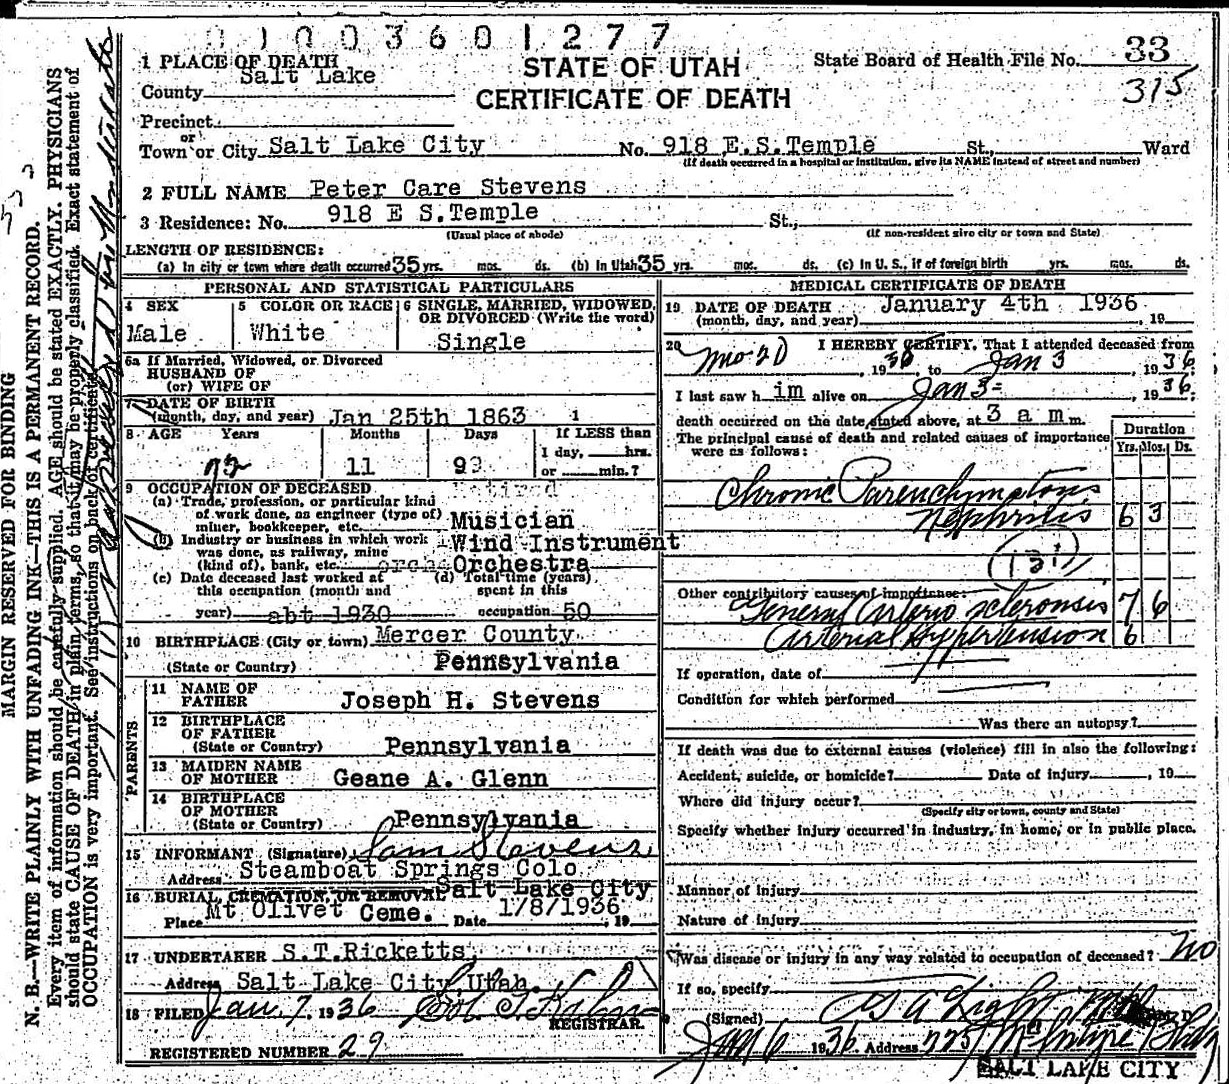 0 1 0 0 3 6 0 1 2 7 7
1 PLACE OF DEATH
STATE OF UTAH
CERTIFICATE OF DEATH
State Board of Health File No. 33
315
County Salt Lake
Precinct
or
Town or City Salt Lake City No. 918 E.S.Temple St., Ward
(If death occurred in a hospital or institution, give its NAME instead of street and number)
2 FULL NAME Peter Care Stevens
3 Residence: No. 918 E S.Temple St.,
(Usual place of abode) (If non-resident give city or town and State)
LENGTH OF RESIDENCE:
(a) In city or town where death occurred 35 yrs. mos. ds. (b) In Utah 35 yrs. mos. ds. (c) in U. S., if of foreign birth yrs. mos. ds.
PERSONAL AND STATISTICAL PARTICULARS
4 SEX
Male
5 COLOR OR RACE
White
6 SINGLE, MARRIED, WIDOWED, OR DIVORCED (Write the word)
Single
6a If Married, Widowed, or Divorced
HUSBAND OF
(or) WIFE OF
7 DATE OF BIRTH
(month, day, and year) Jan 25th 1863 1
8 AGE Years Months Days If LESS than
1 day, hrs.
72 11 or min.?
9 OCCUPATION OF DECEASED retired
(a) Trade, profession, or particular kind
of work done, as engineer (type of)
miner, bookkeeper, etc. Musician
(b) Industry or business in which work
was done, as railway, mine
(kind of), bank, etc. Wind Instrument
Orchestra
(c) Date deceased last worked at
this occupation (month and
year) abt 1930
(d) Total time (years)
spent in this
occupation 50
10 BIRTHPLACE (City or town) Mercer County
(State or Country) Pennsylvania
PARENTS
11 NAME OF
FATHER Joseph H. Stevens
12 BIRTHPLACE
OF FATHER
(State or Country) Pennsylvania
13 MAIDEN NAME
OF MOTHER Geane A. Glenn
14 BIRTHPLACE
OF MOTHER
(State or Country) Pennsylvania
15 INFORMANT (Signature) Sam Stevens
Address Steamboat Springs Colo
16 BURIAL, CREMATION, OR REMOVAL Salt Lake City
Place Mt Olivet Ceme. Date 1/8/1936, 19
17 UNDERTAKER S.T.Ricketts
Address Salt Lake City, Utah.
18 FILED Jan. 7, 1936
REGISTRAR.
REGISTERED NUMBER 29
MEDICAL CERTIFICATE OF DEATH
19 DATE OF DEATH January 4th 1936
(month, day, and year) , 19
20 I HEREBY CERTIFY, That I attended deceased from
, 1936, to Jan 3, 1936;
I last saw him alive on Jan 3 =, 1936;
death occurred on the date stated above, at 3 a m m.
The principal cause of death and related causes of importance
were as follows:
Duration
Yrs. Mos. Ds.
Chronic Parenchymatous
Nephritis 6 3
(131)
Other contributory causes of importance:
General Arterio sclerosis 7 6
Arterial Hypertension 6
If operation, date of
Condition for which performed
Was there an autopsy?
If death was due to external causes (violence) fill in also the following:
Accident, suicide, or homicide? Date of injury , 19
Where did injury occur?
(Specify city or town, county and State)
Specify whether injury occurred in industry, in home, or in public place.
Manner of Injury
Nature of Injury
Was disease or injury in any way related to occupation of deceased? No
If so, specify
(Signed) M D
Jan 6 1936 Address McIntyre Bldg
SALT LAKE CITY
MARGIN RESERVED FOR BINDING
N. B.—WRITE PLAINLY WITH UNFADING INK—THIS IS A PERMANENT RECORD.
Every item of information should be carefully supplied. AGE should be stated EXACTLY. PHYSICIANS
should state CAUSE OF DEATH in plain terms, so that it may be properly classified. Exact statement of
OCCUPATION is very important. See instructions on back of certificate.